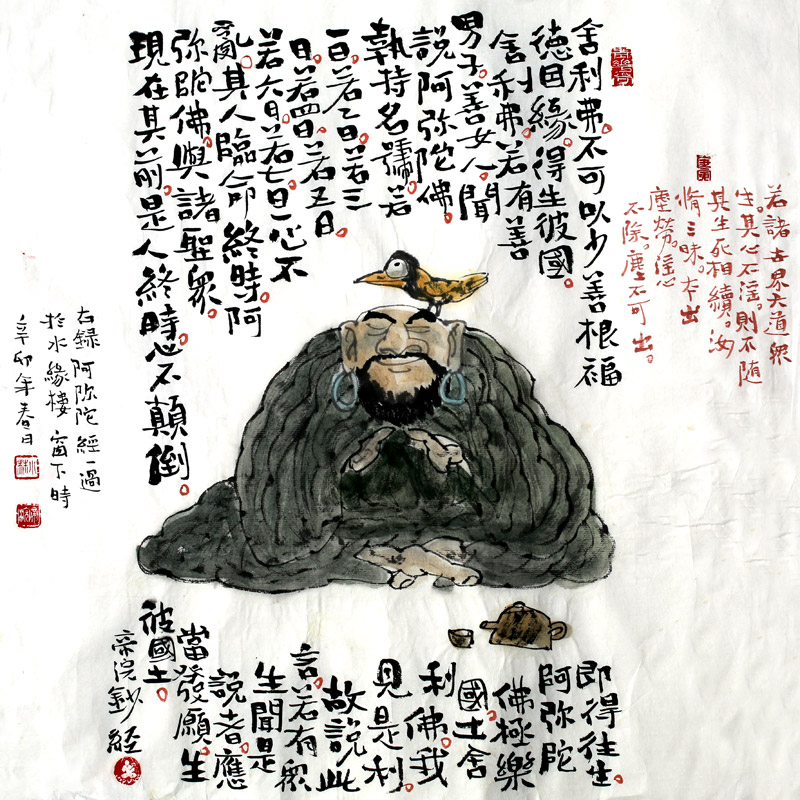 舍利弗。不可以少善根福
德因緣。得生彼國。
舍利弗。若有善
男子。善女人。聞
說阿弥陀佛。
執持名號。若
一日。若二日。若三
日。若四日。若五日。
若六日。若七日。一心不
乱。其人臨命終時。阿
弥陀佛。與諸聖衆。
現在其前。是人終時。心不顛倒。
即得往生。
阿弥陀
佛極樂
國土。舍
利佛。我
見是利。
故説此
言。若有衆
生聞是
説者。應
當發願。生
彼國土。
帝浣鈔經
若諸世界六道衆
生。其心不淫。則不随
其生死相續。汝
脩三昧。本出
塵勞。淫心
不除。塵不可出。
右録阿弥陀經一過
於水緣樓窗下時
辛卯年春日